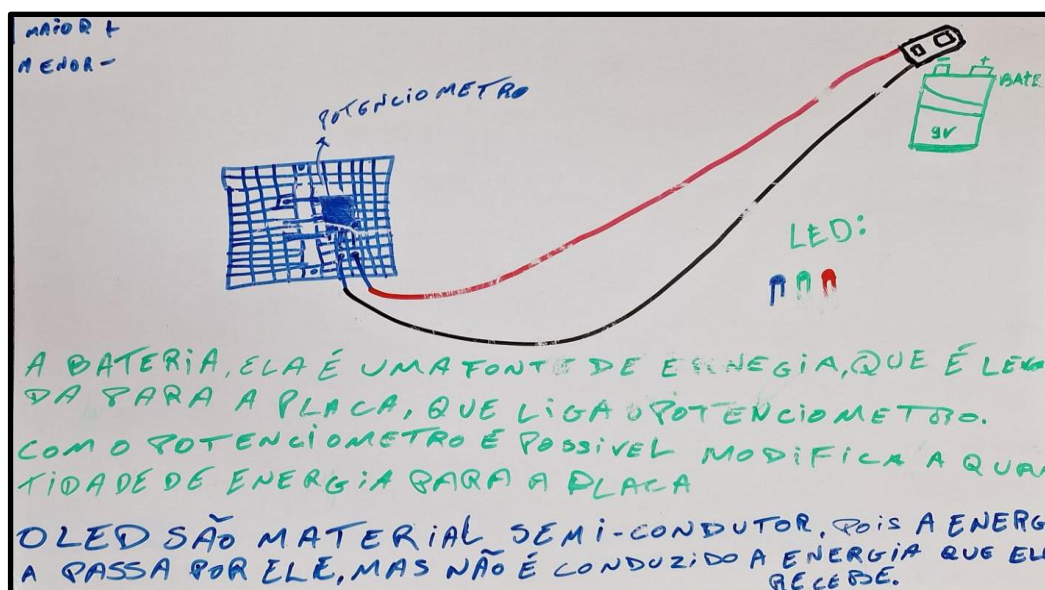 MAIOR +
MENOR -
POTENCIOMETRO
- +
BATE
9V
LED:
A BATERIA, ELA É UMA FONTE DE ENERGIA, QUE É
DA PARA A PLACA, QUE LIGA O POTENCIOMETRO.
COM O POTENCIOMETRO É POSSIVEL MODIFICA A QUAN
TIDADE DE ENERGIA PARA A PLACA
O LED SÃO MATERIAL SEMI-CONDUTOR, POIS A ENERG
A PASSA POR ELE, MAS NÃO É CONDUZIDO A ENERGIA QUE EL
RECEBE.